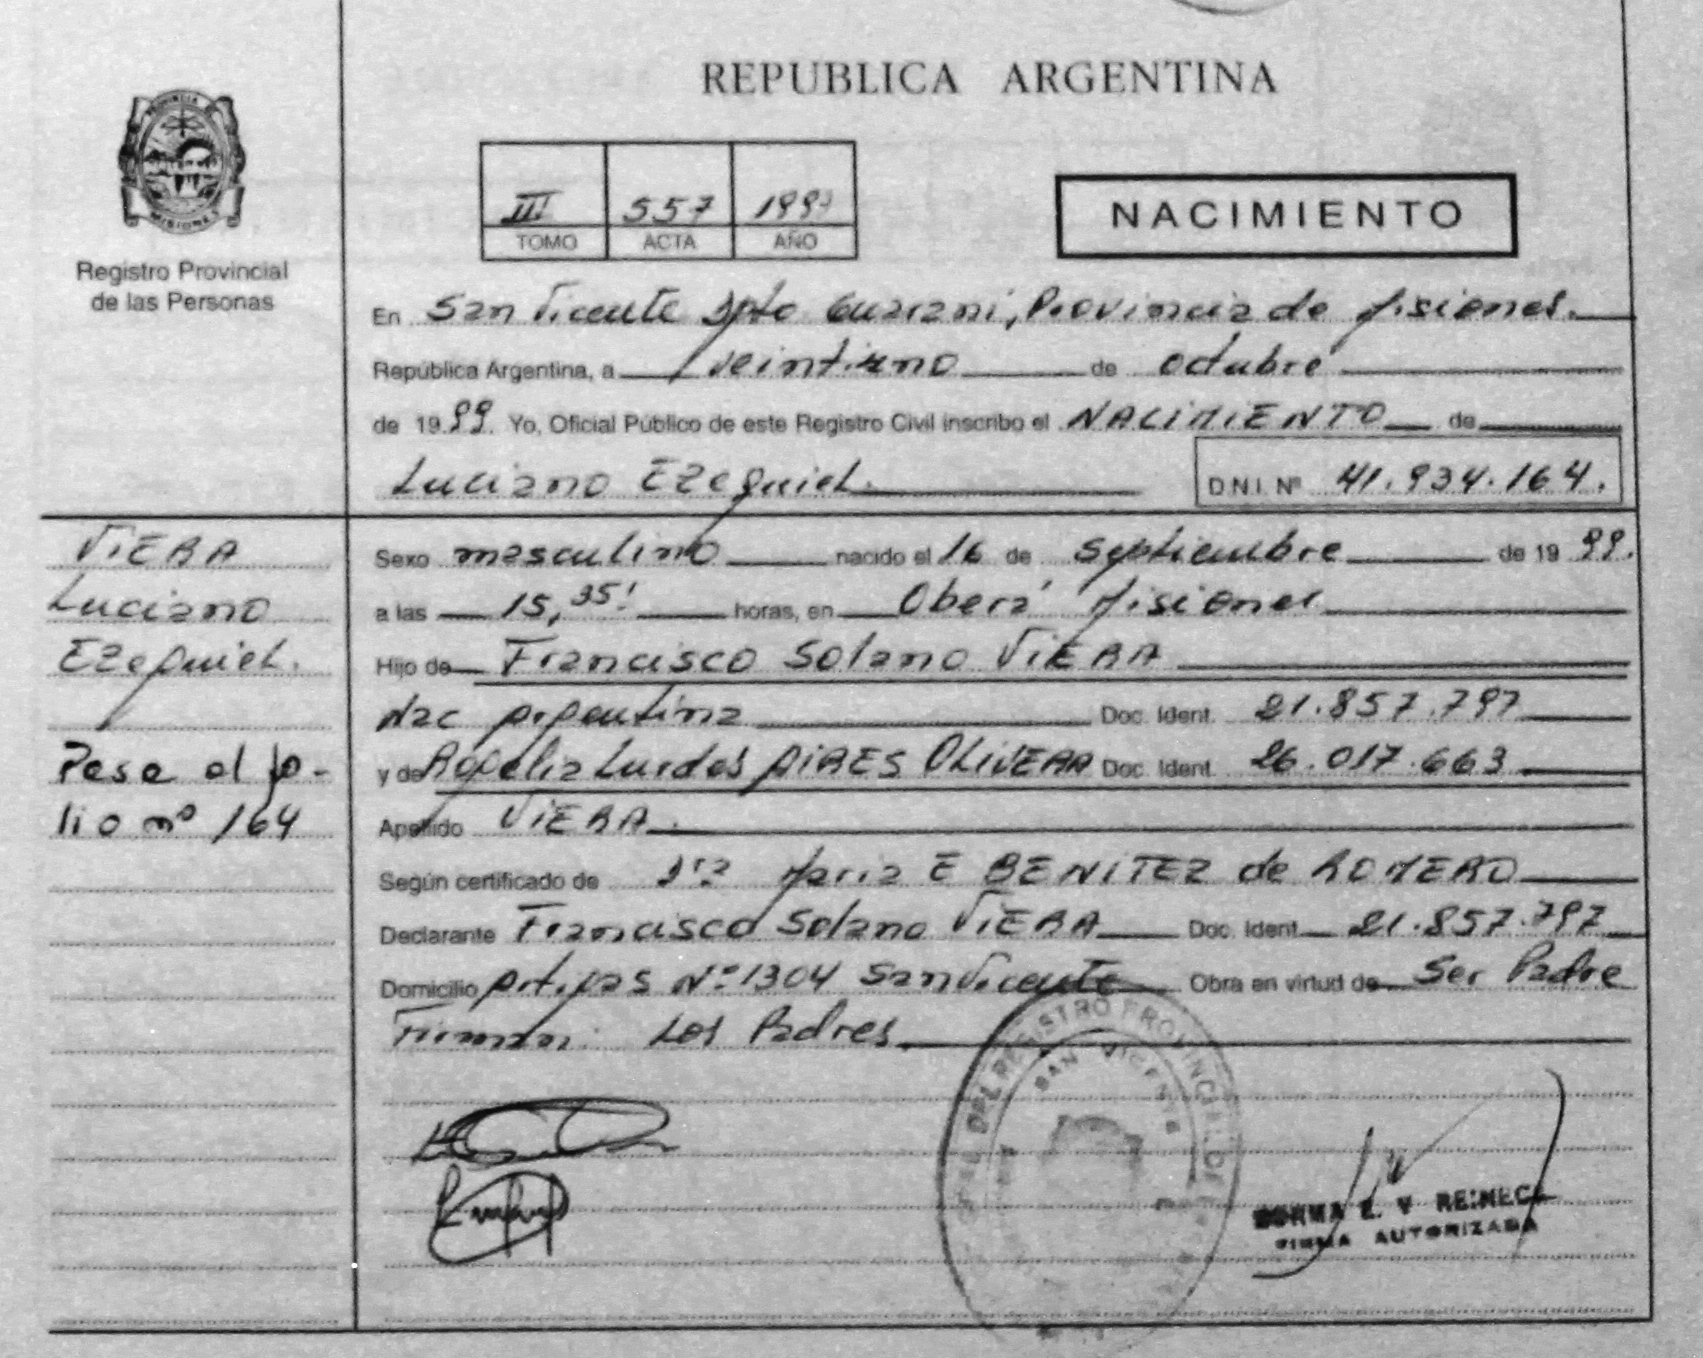 REPUBLICA ARGENTINA
PROVINCIA DE
MISIONES
Registro Provincial
de las Personas
III 557 1999
TOMO ACTA AÑO
NACIMIENTO
En San Vicente Dpto Guarani, Provincia de Misiones.
República Argentina, a veintiuno de octubre
de 1999. Yo, Oficial Público de este Registro Civil inscribo el NACIMIENTO de
Luciano Ezequiel. D.N.I. Nº 41.934.164.
VIERA
Luciano
Ezequiel.
Pasa al fo-
lio nº 164
Sexo masculino nacido el 16 de Septiembre de 1999.
a las 15,35! horas, en Oberá Misiones
Hijo de Francisco Solano VIERA
Nac Argentina Doc. Ident. 21.857.797
y de Rogelia Lurdes PIRES OLIVERA Doc. Ident. 26.017.663
Apellido VIERA.
Según certificado de Dra Maria E BENITEZ de ROMERO
Declarante Francisco Solano VIERA Doc. Ident. 21.857.797
Domicilio Artigas Nº 1304 San Vicente Obra en virtud de Ser Padre
Firman: Los Padres
DEL REGISTRO PROVINCIAL DE
SAN VICENTE
NORMA E. V REINECK
FIRMA AUTORIZADA